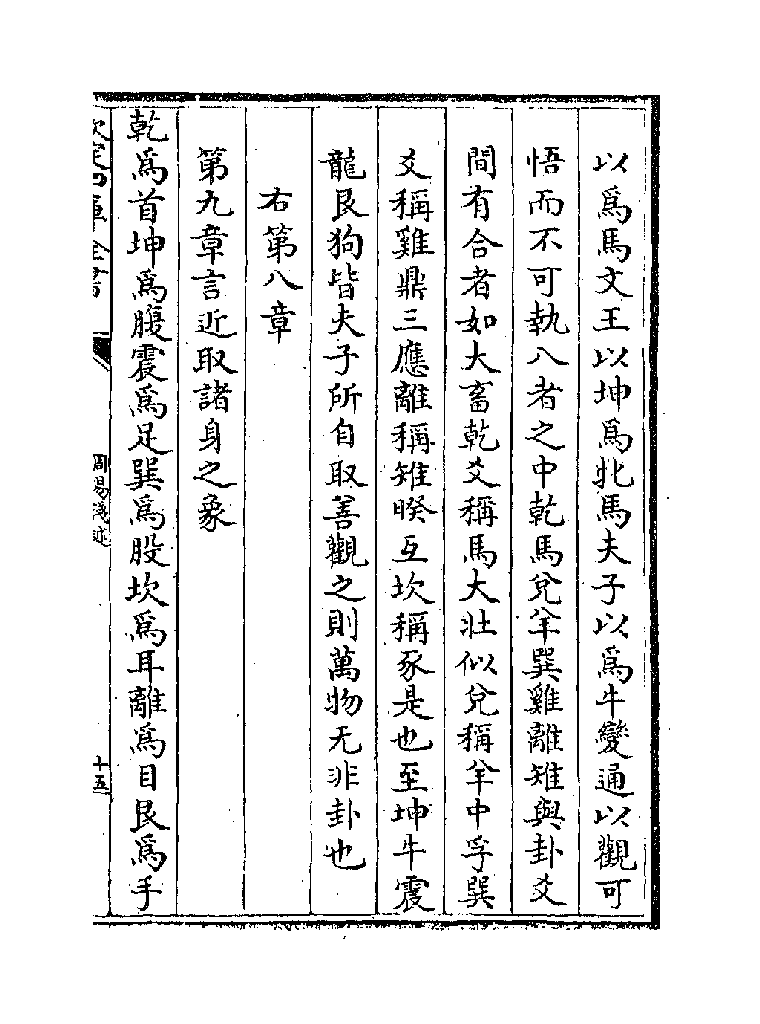 以爲馬文王以坤爲牝馬夫子以爲牛變通以觀可
悟而不可執八者之中乾馬兌羊巽雞離雉與卦爻
間有合者如大畜乾爻稱馬大壯似兌稱羊中孚巽
爻稱雞鼎三應離稱雉暌互坎稱豕是也至坤牛震
龍艮狗皆夫子所自取善觀之則萬物无非卦也
右第八章
第九章言近取諸身之象
乾爲首坤爲腹震爲足巽爲股坎爲耳離爲目艮爲手
欽定四庫全書
周易淺述
十五